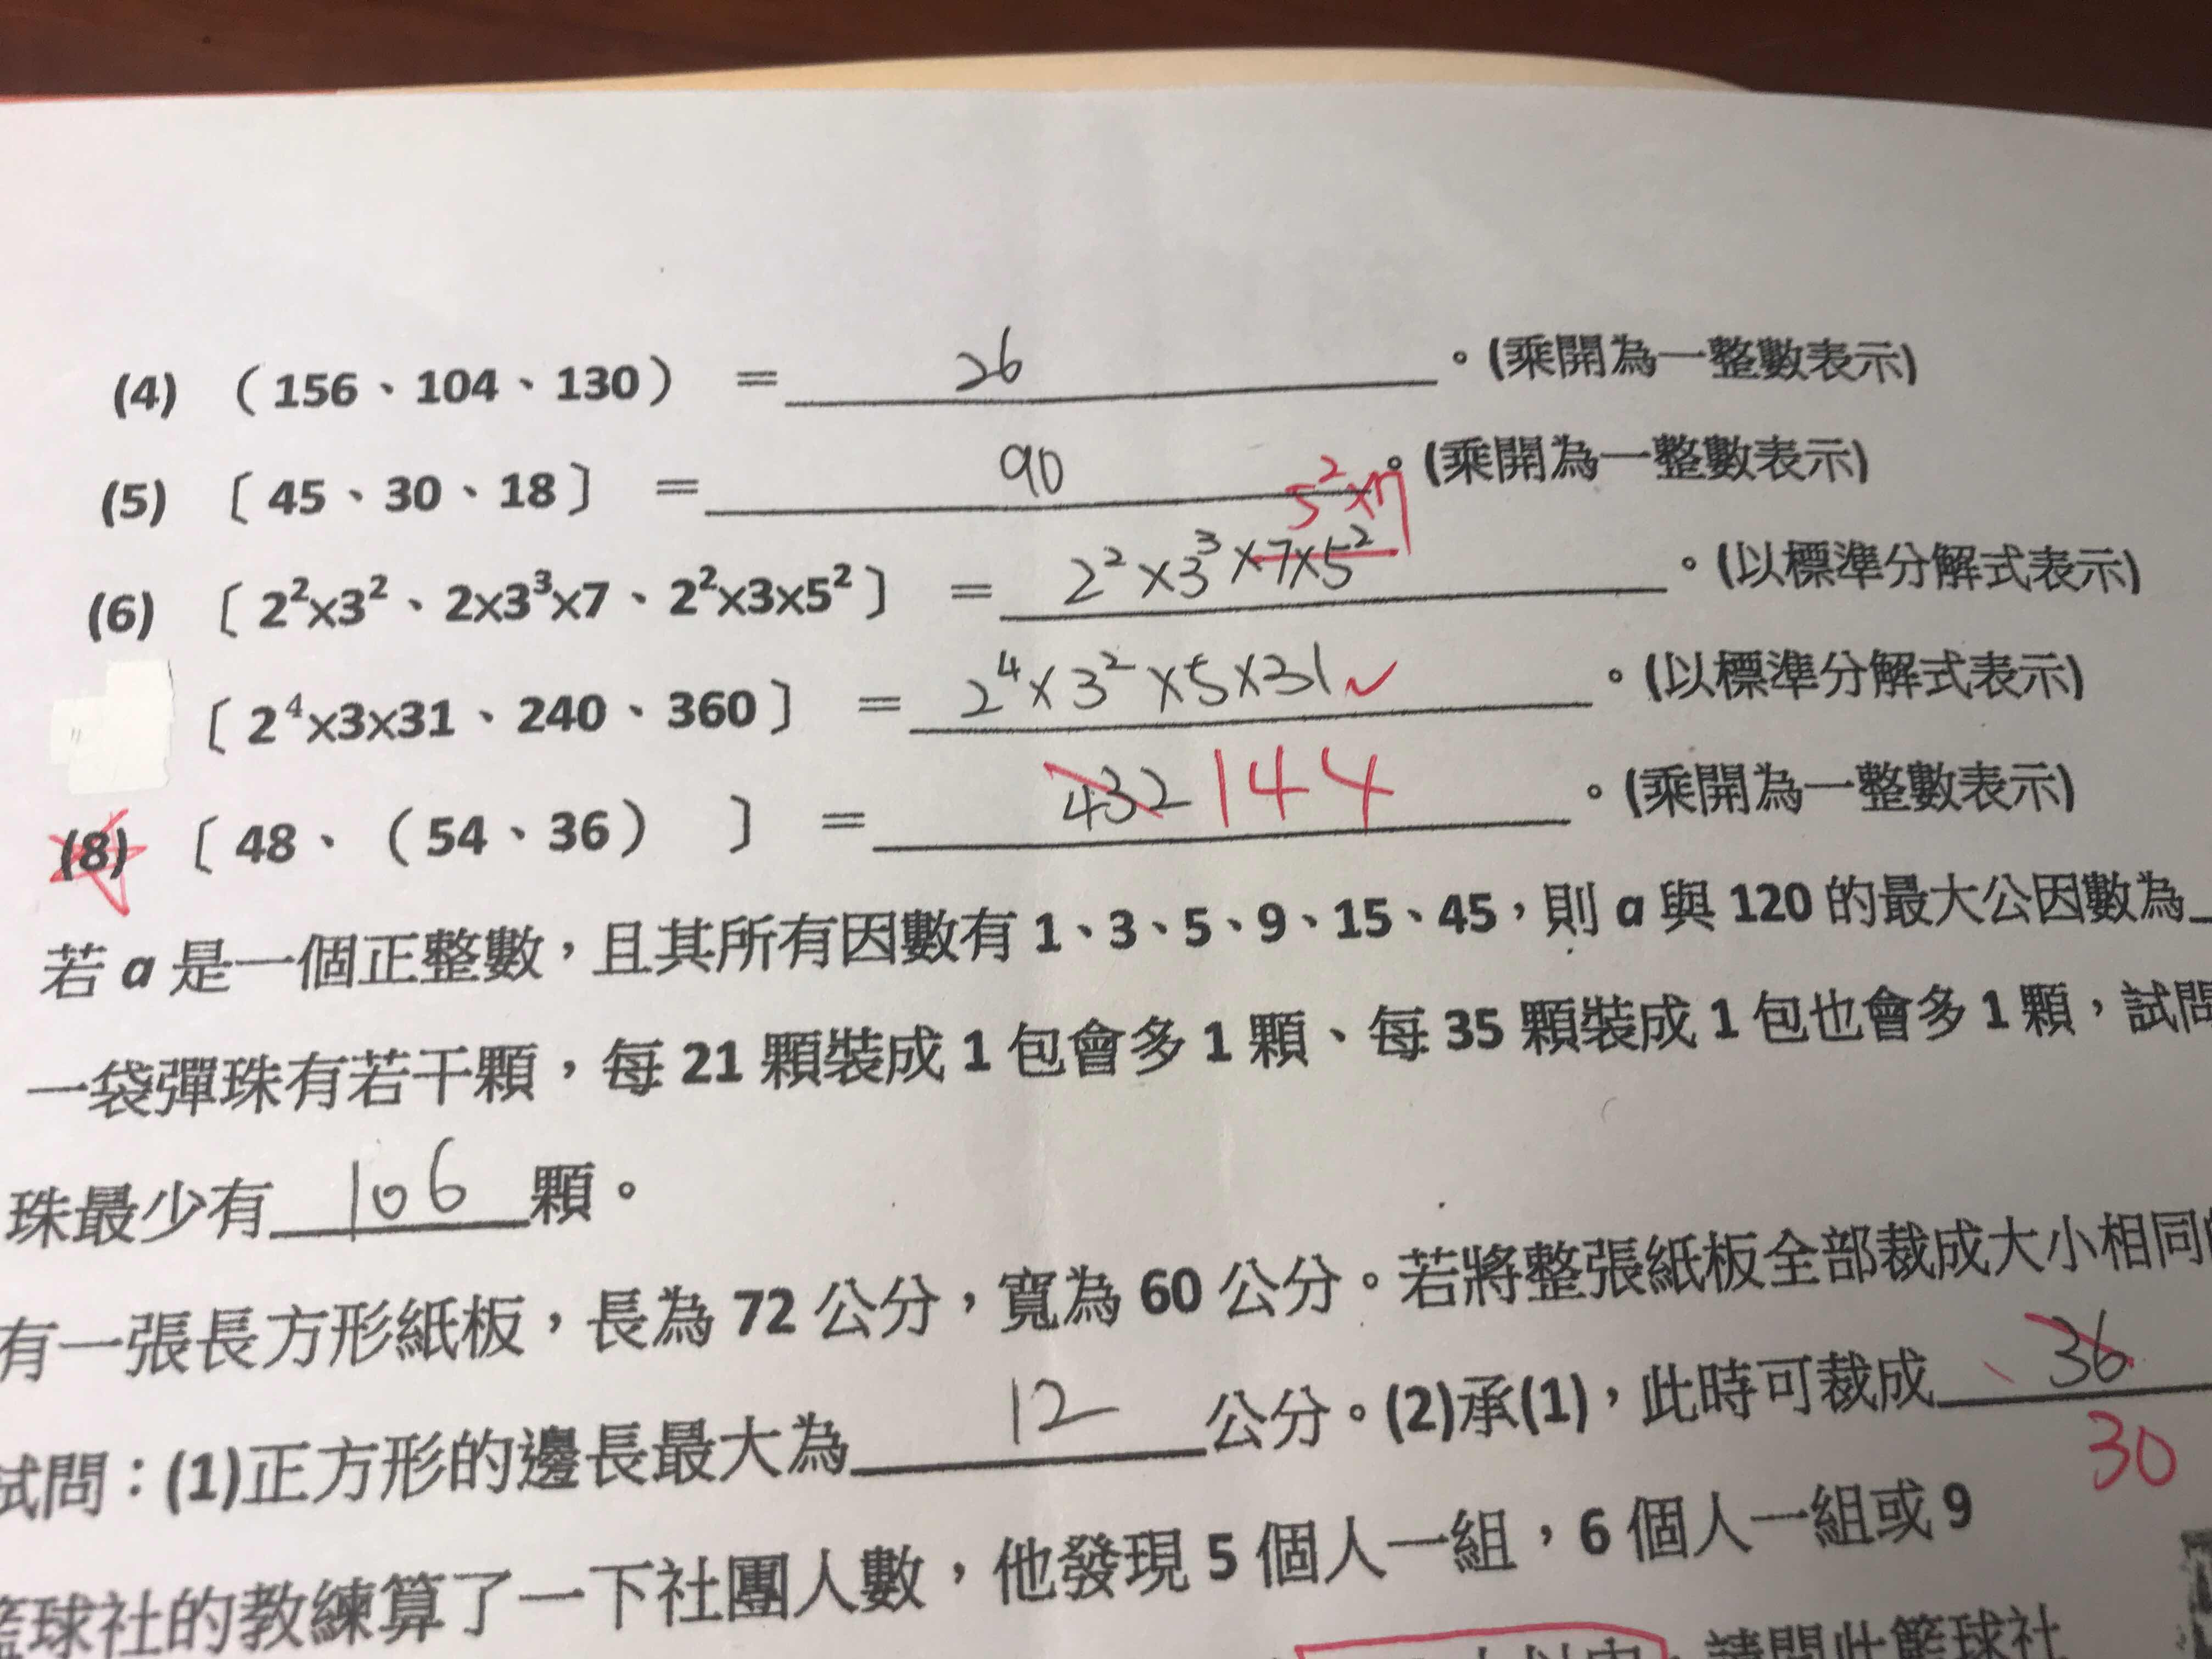 (4) （156、104、130） ＝ 26 。(乘開為一整數表示)
(5) 〔45、30、18〕 ＝ 90 。(乘開為一整數表示)
5²×7
(6) 〔2²×3²、2×3³×7、2²×3×5²〕 ＝ 2²×3³×7×5² 。(以標準分解式表示)
〔2⁴×3×31、240、360〕 ＝ 2⁴×3²×5×31 。(以標準分解式表示)
(8) 〔48、（54、36） 〕 ＝ 432 144 。(乘開為一整數表示)
若 a 是一個正整數，且其所有因數有 1、3、5、9、15、45，則 a 與 120 的最大公因數為
一袋彈珠有若干顆，每 21 顆裝成 1 包會多 1 顆、每 35 顆裝成 1 包也會多 1 顆，試問
珠最少有 106 顆。
有一張長方形紙板，長為 72 公分，寬為 60 公分。若將整張紙板全部裁成大小相同
試問：(1)正方形的邊長最大為 12 公分。(2)承(1)，此時可裁成 36
30
籃球社的教練算了一下社團人數，他發現 5 個人一組，6 個人一組或 9
請問此籃球社